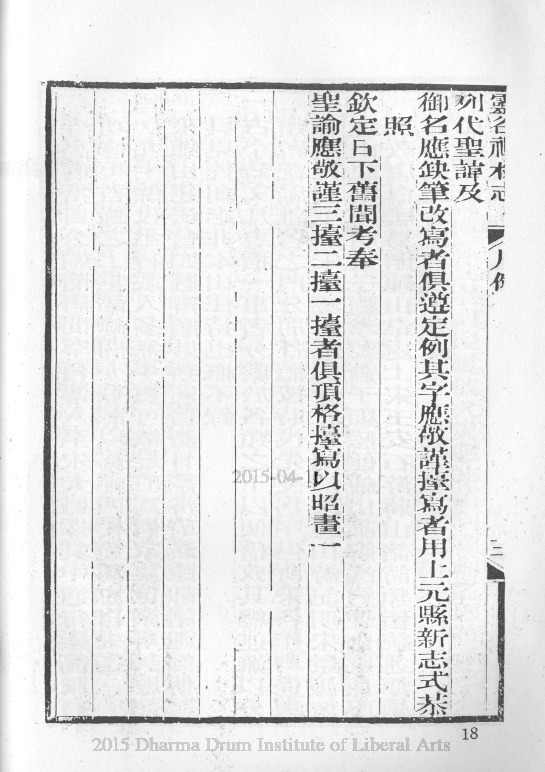 靈谷禪林志
凡例
三
列代聖諱及
御名應缺筆改寫者俱遵定例其字應敬謹擡寫者用上元縣新志式恭
照
欽定日下舊聞考奉
聖諭應敬謹三擡二擡一擡者俱頂格擡寫以昭畫一
2015-04-
18
2015 Dharma Drum Institute of Liberal Arts